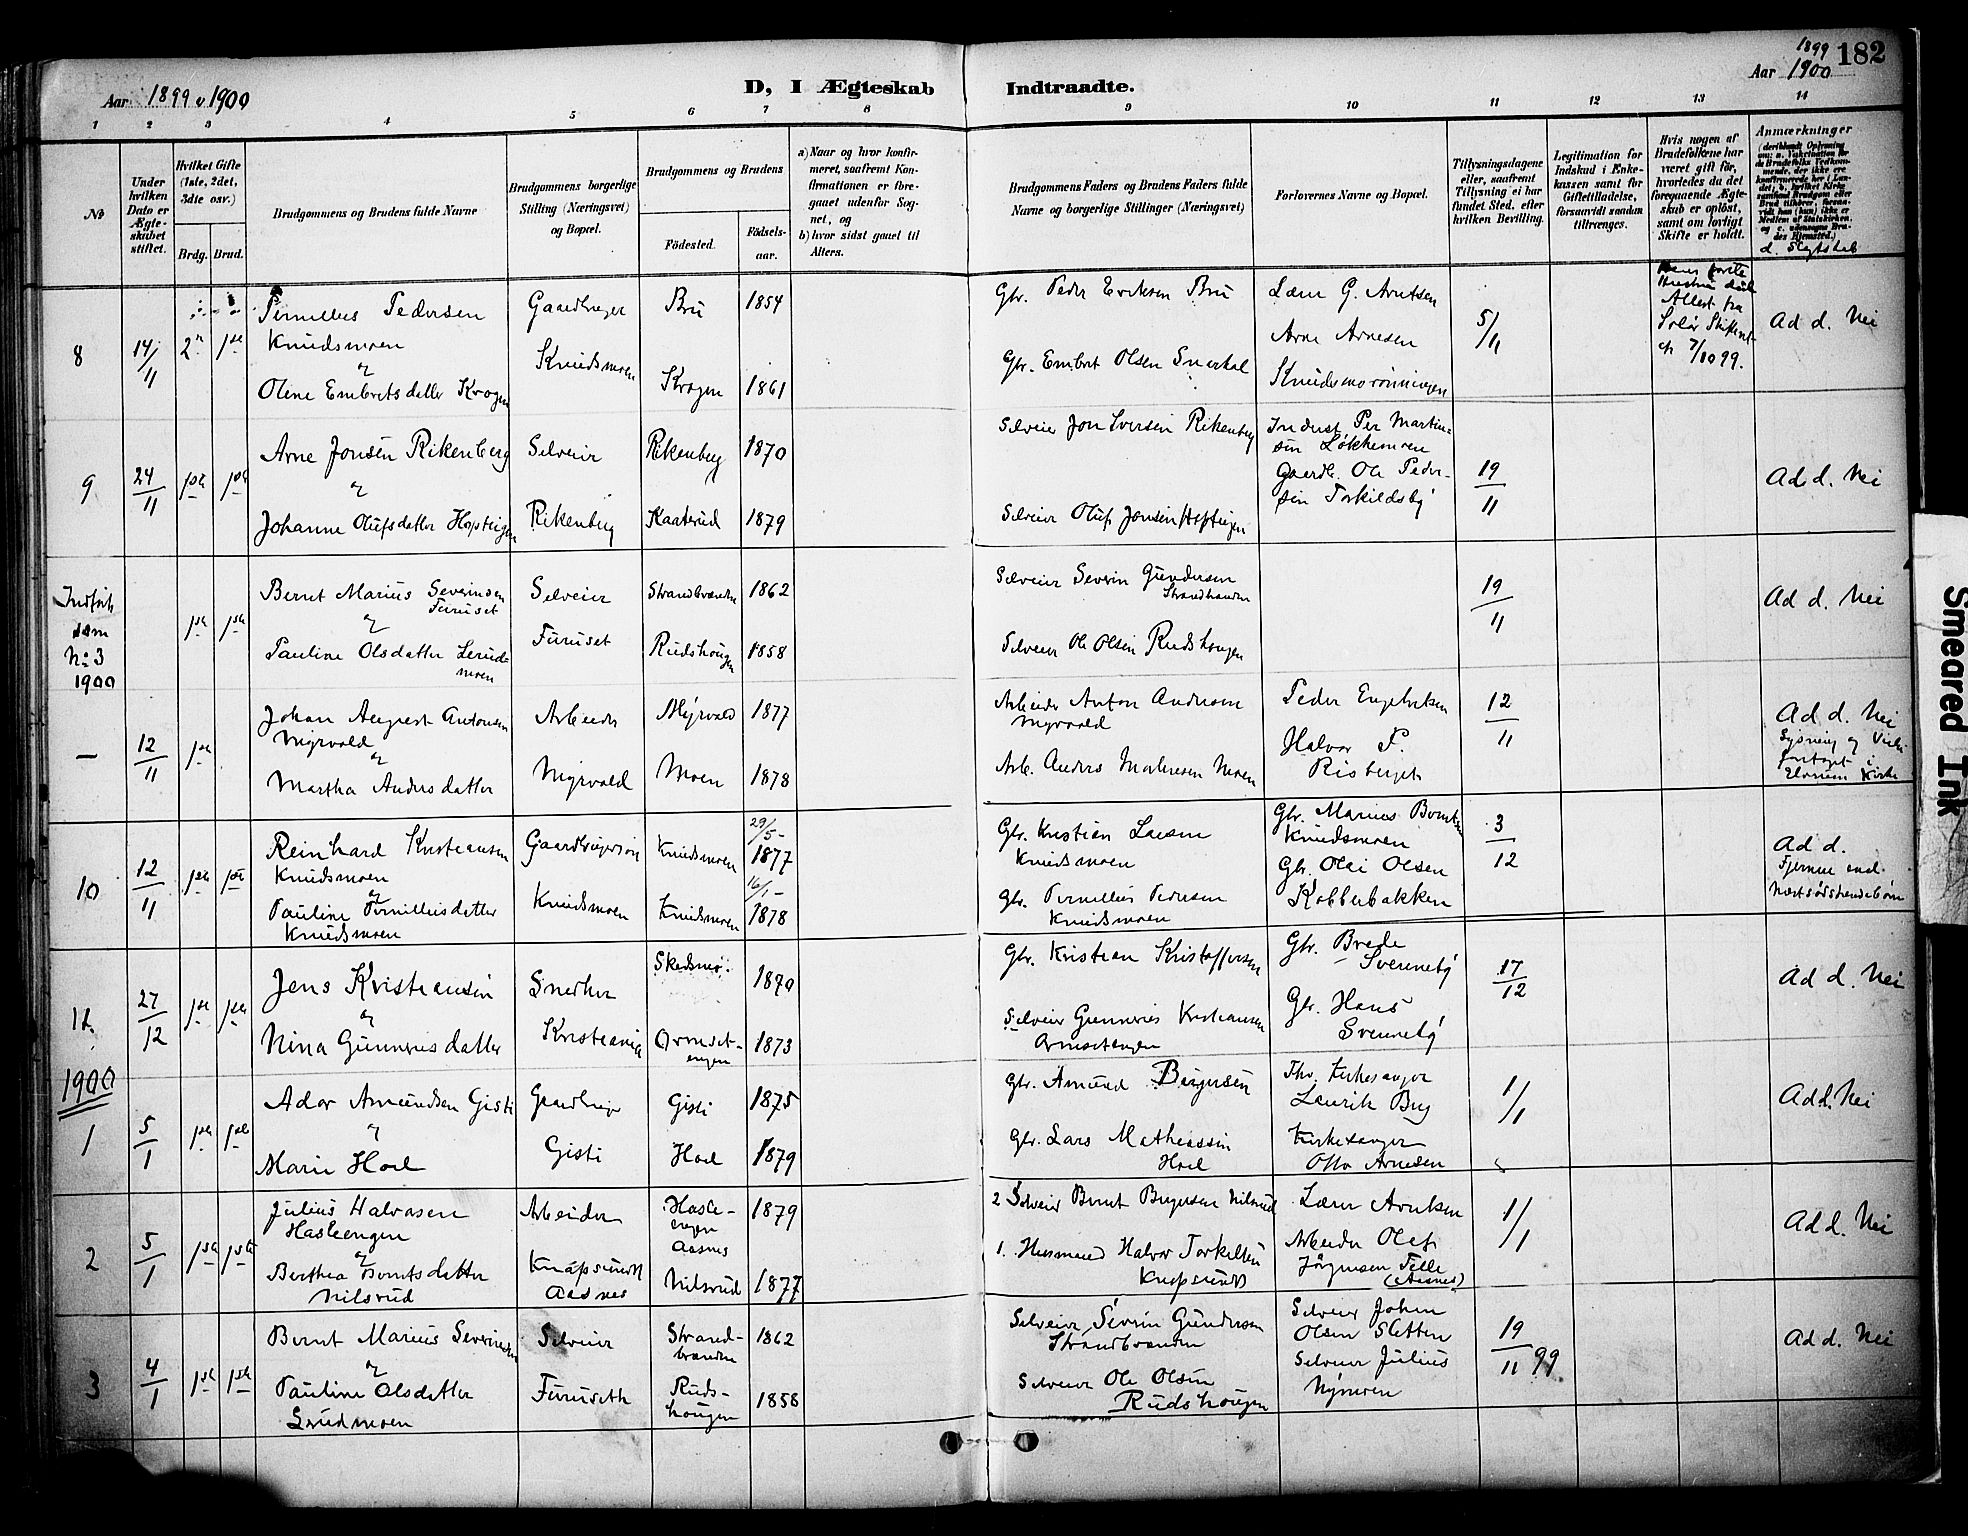 Aar 1899 o 1900
D, I Ægteskab
Indtraadte.
1899
Aar 1900
182
1 2 3 4 5 6 7 8 9 10 11 12 13 14
No
Under hvilken Dato er Ægteskabet stiftet.
Hvilket Gifte (1ste, 2det, 3die osv.)
Brdg. Brud.
Brudgommens og Brudens fulde Navne
Brudgommens borgerlige Stilling (Næringsvei) og Bopæl.
Brudgommens og Brudens
Fødested.
Fødselsaar.
a) Naar og hvor konfirmeret, saafremt Konfirmationen er foregaaet udenfor Sognet, og
b) hvor sidst gaaet til Alters.
Brudgommens Faders og Brudens Faders fulde Navne og borgerlige Stillinger (Næringsvei)
Forlovernes Navne og Bopæl.
Tillysningsdagene eller, saafremt Tillysning ei har fundet Sted, efter hvilken Bevilling.
Legitimation for Indskud i Enkekassen samt for Giftetilladelse, forsaavidt saadan tiltrænges.
Hvis nogen af Brudefolkene har været gift før, hvorledes da det foregaaende Ægteskab er opløst, samt om lovligt Skifte er holdt.
Anmærkninger
d. Slegtskab
8
14/11
2n 1ste
Pernillus Pedersen
Knudsmoen
og
Oline Embretsdatter Krogen
Gaardbruger
Knudsmoen
Bru
Krogen
1854
1861
Gbr. Peder Eriksen Bru
Gbr. Embret Olsen
Lærer G. Arntsen
Arne Arnesen
Knudsmorønningen
5/11
7/10 99.
Ad d. Nei
9
24/11
1ste 1ste
Arne Jonsen Rikenberg
og
Johanne Olufsdatter
Selveier
Rikenberg
Rikenberg
Kaaterud
1870
1879
Selveier Jon Iversen Rikenberg
Selveier Oluf Jonsen
Indust Per Martinsen Løkkemoen
Gaardb. Ole Pedersen Torkildsby
19/11
Ad d. Nei
Indført som No 3 1900
1ste 1ste
Bernt Marius Severinsen
Furuset
og
Pauline Olsdatter Lerudmoen
Selveier
Furuset
Strandbraaden
Rudshougen
1862
1858
Selveier Severin Gundersen
Selveier Ole Olsen Rudshougen
19/11
Ad d. Nei
—
12/11
1ste
Johan August Antonsen
Myrvold
og
Martha Andersdatter
Arbeider
Myrvold
Myrvold
Moen
1877
1878
Arbeider Anton Andersen
Myrvold
Arb. Anders Moen
Peder Engebretsen
Halvor P.
Risberget
12/11
Ad d. Nei
Lysning og Vielse foretaget i Elverum Kirke
10
12/11
1ste 1ste
Reinhard Kristiansen
Knudsmoen
og
Pauline Pernillusdatter
Knudsmoen
Gaardbrugersøn
Knudsmoen
Knudsmoen
Knudsmoen
29/5 - 1877
16/1 - 1878
Gbr. Kristian Larsen
Knudsmoen
Gbr. Pernillus Pedersen
Knudsmoen
Gbr. Marius Berntsen
Knudsmoen
Gbr. Olai Olsen
Kobberbakken
3/12
Ad d.
Fjernere end
Næstsødskendebørn
11.
27/12
1ste 1ste
Jens Kristiansen
og
Nina Gunneriusdatter
Snedker
Kristiania
Skedsmo
Ormsetengen
1870
1873
Gbr. Kristian Kristoffersen
Selveier Gunnerius Kristiansen
Ormsetengen
Gbr. Brede Svenneby
Gbr. Hans Svenneby
17/12
Ad d. Nei
1900
1
5/1
1ste 1ste
Ador Amundsen Gisti
og
Marie Hoel
Gaardbruger
Gisti
Gisti
Hoel
1875
1879
Gbr. Amund Birgersen
Gbr. Lars Mathiassen
Hoel
Fhv. Kirkesanger
Laurik Bry
Kirkesanger
Otto Arnesen
1/1
Ad d. Nei
2
5/1
1ste 1ste
Julius Halvorsen
Hasleengen
og
Berthea Berntsdatter
Nilsrud
Arbeider
Knapsundt
Aasnes
Hasleengen
Aasnes
Nilsrud
1879
1877
2 Selveier Bernt Birgersen Nilsrud
1. Husmand Halvor Torkilsen
Knapsundt
Lærer Arntsen
Arbeider Olaf
Jørgensen Telle
(Aasnes)
1/1
Ad d. Nei
3
4/1
1ste 1ste
Bernt Marius Severinsen
og
Pauline Olsdatter
Lerudmoen
Selveier
Furuseth
Strandbraaden
Rudshougen
1862
1858
Selveier Severin Gundersen
Strandbraaden
Selveier Ole Olsen
Rudshougen
Selveier Johan
Olsen Sletten
Selveier Julius
Nymoen
19/11 99.
Ad d. Nei
Smeared Ink